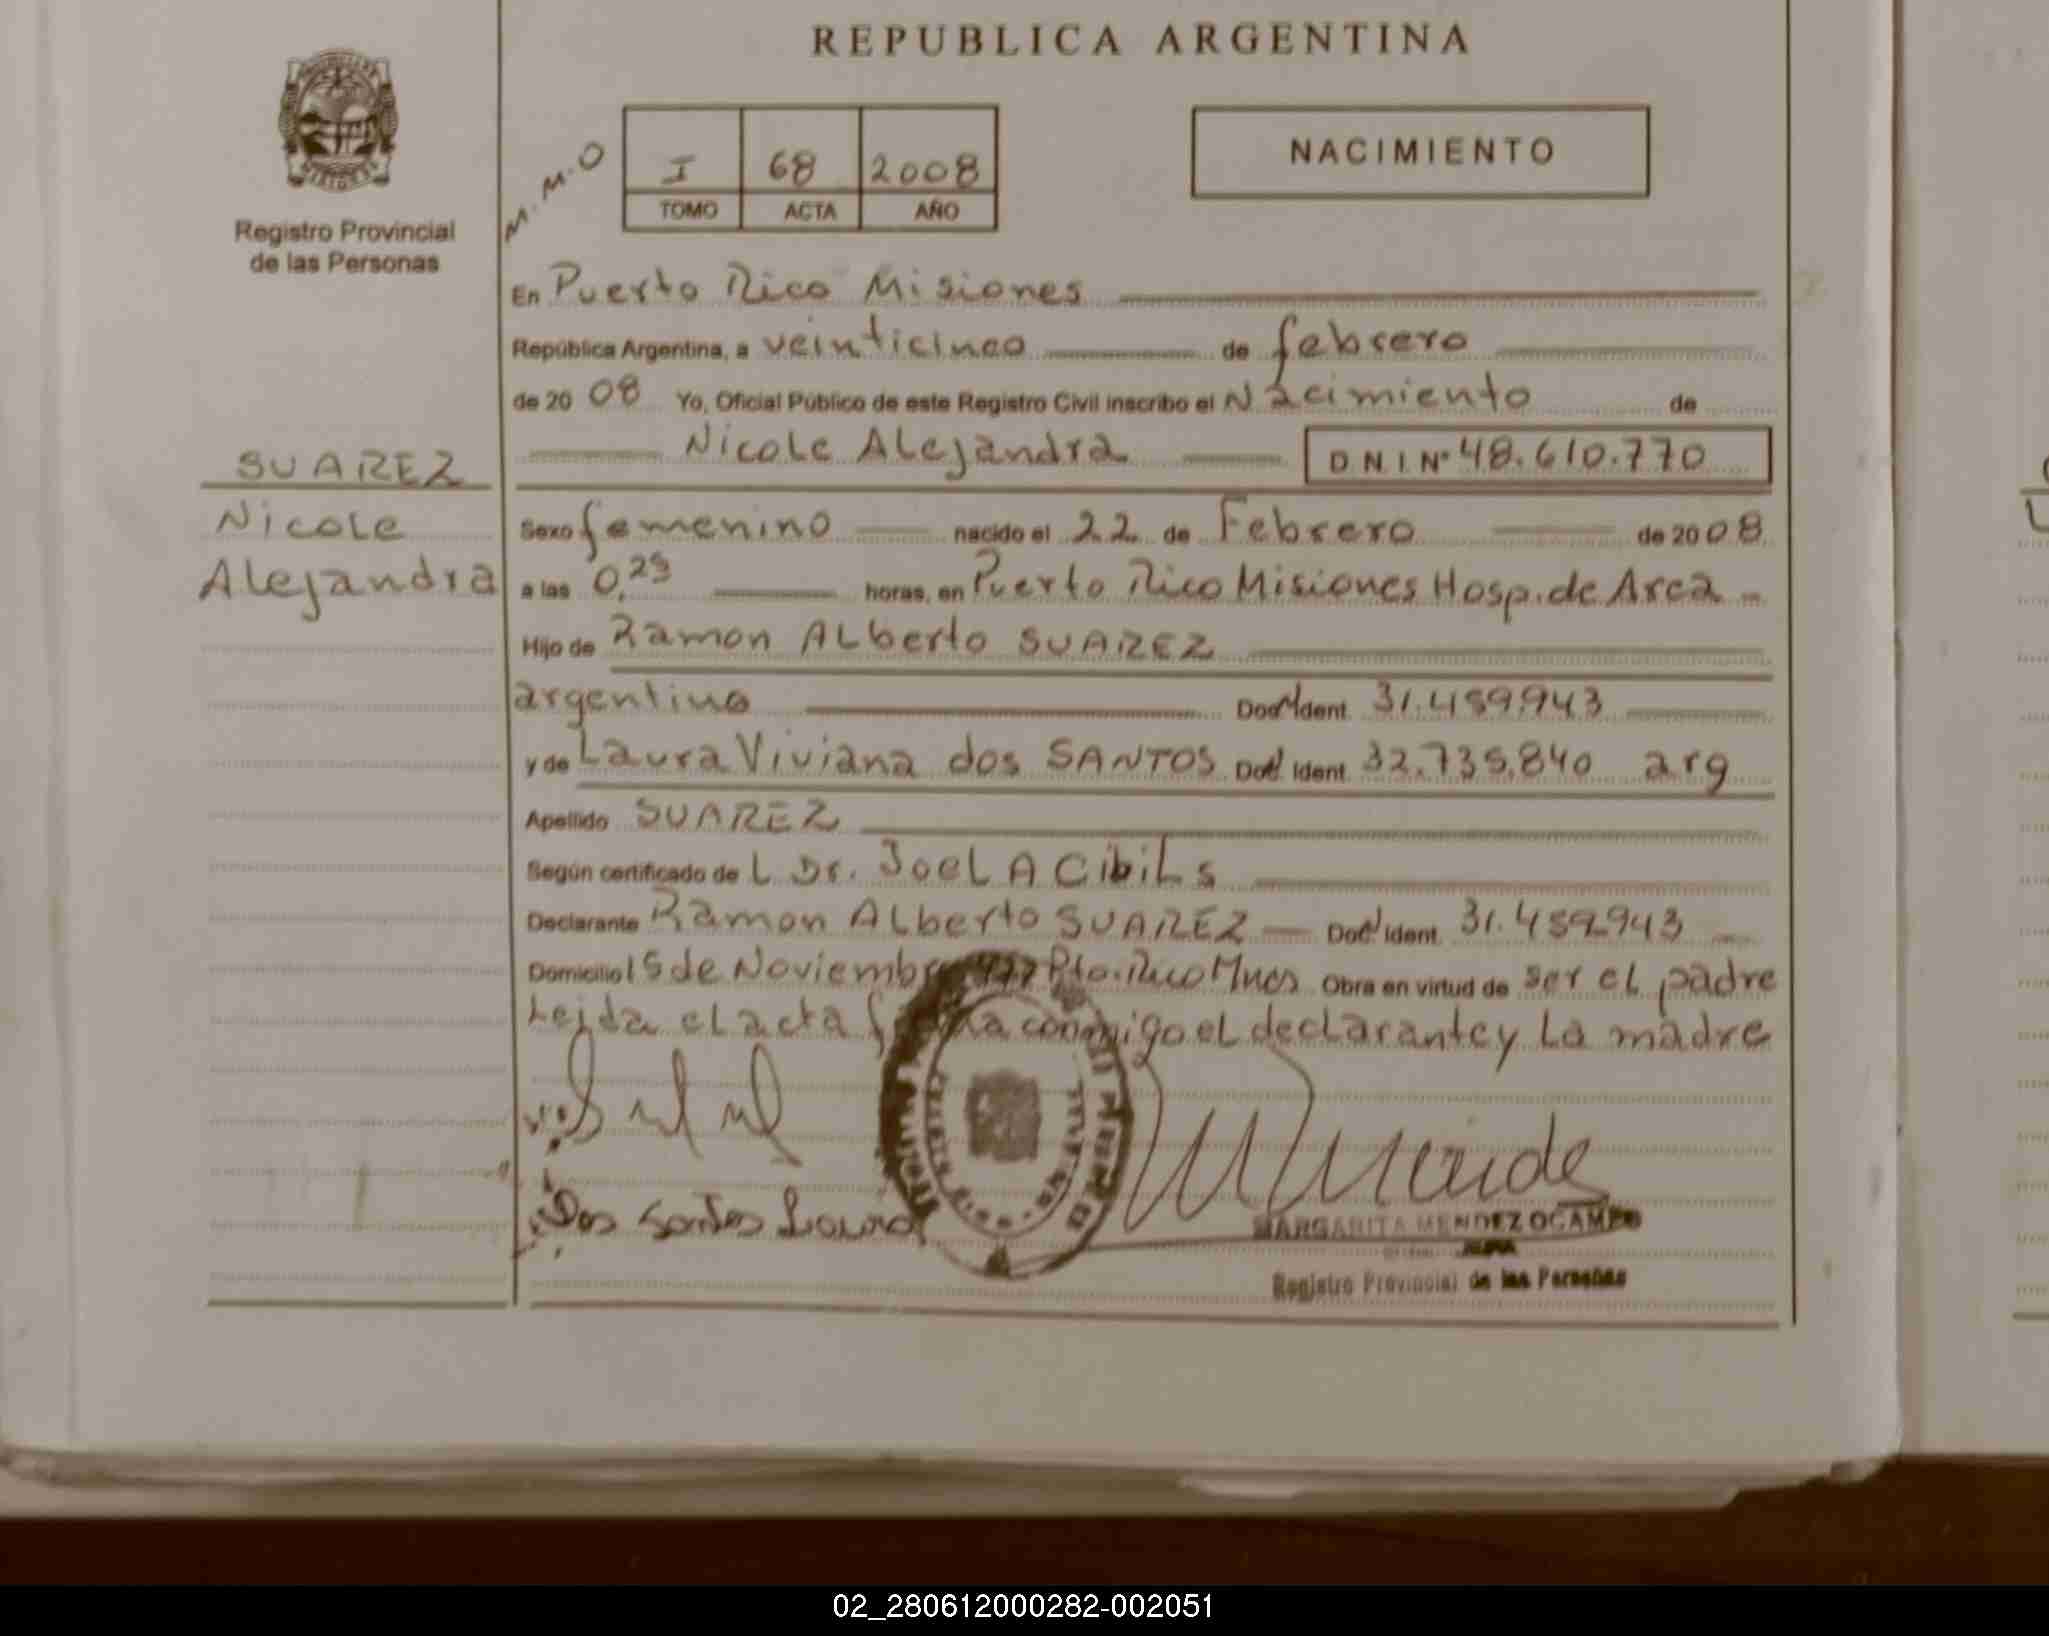 REPUBLICA ARGENTINA
M.M.O
I 68 2008
TOMO ACTA AÑO
NACIMIENTO
Registro Provincial
de las Personas
En Puerto Rico Misiones
República Argentina, a veinticinco de febrero
de 20 08 Yo, Oficial Público de este Registro Civil inscribo el Nacimiento de
Nicole Alejandra D N I Nº 48.610.770
SUAREZ
Nicole
Alejandra
Sexo femenino nacido el 22 de Febrero de 20 08
a las 0,29 horas, en Puerto Rico Misiones Hosp. de Area
Hijo de Ramon Alberto SUAREZ
argentino Doc Ident. 31.459.943
y de Laura Viviana dos SANTOS Doc Ident. 32.735.840 arg
Apellido SUAREZ
Según certificado de L Dr. Joel A Cibils
Declarante Ramon Alberto SUAREZ Doc Ident. 31.459.943
Domicilio 15 de Noviembre Pto. Rico Mnes Obra en virtud de ser el padre
Leida el acta firma conmigo el declarante y La madre
Dos Santos Laura
MARGARITA MENDEZ OCAMPO
Registro Provincial de las Personas
02_280612000282-002051